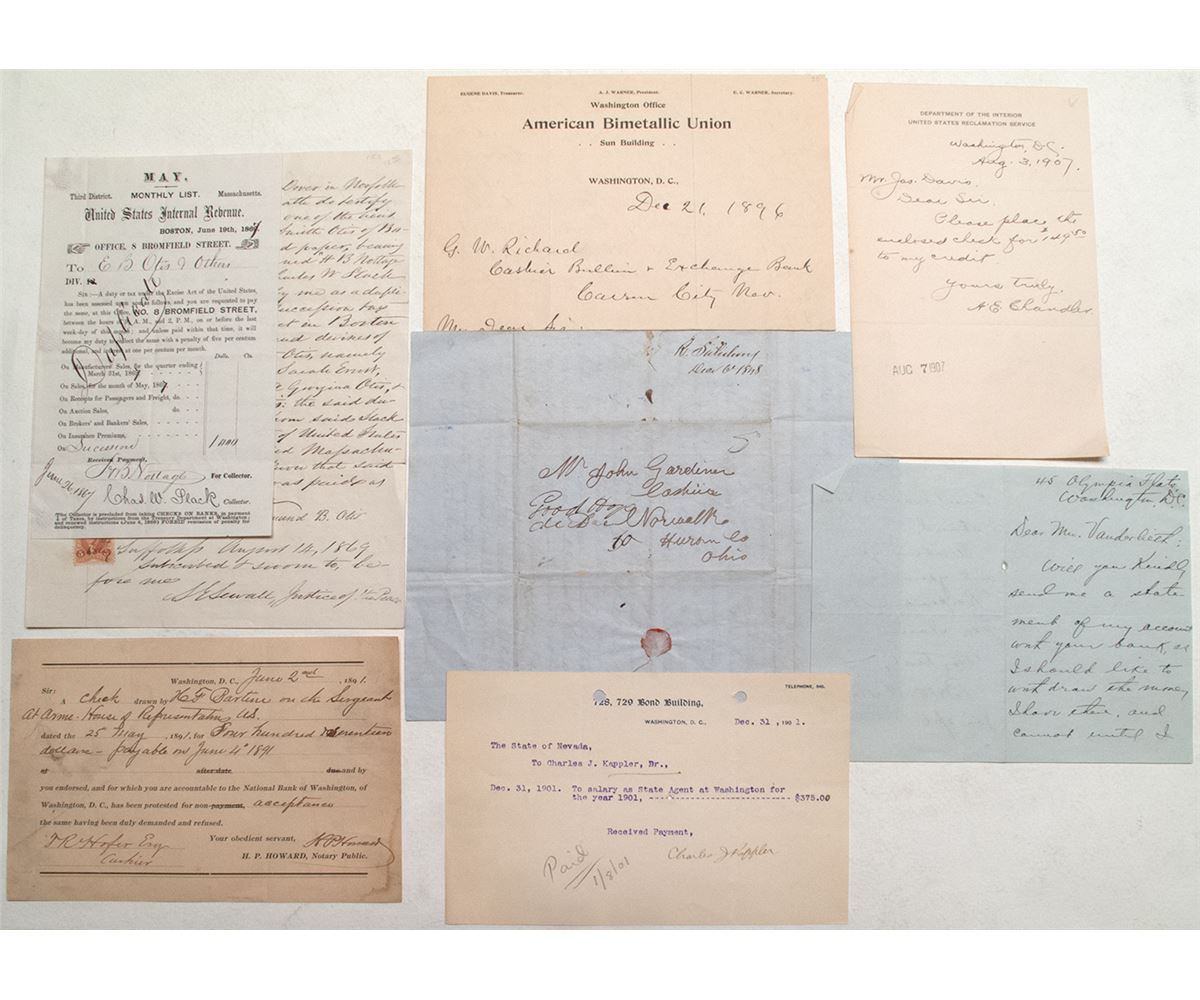 MAY.
Third District. MONTHLY LIST. Massachusetts.
United States Internal Revenue.
BOSTON, June 19th, 1867
OFFICE, 8 BROMFIELD STREET.
To E B Otis & Others
DIV.
SIR:—A duty or tax under the Excise Act of the United States,
has been assessed upon you as follows, and you are requested to pay
the same, at this Office, NO. 8 BROMFIELD STREET,
between the hours of A. M., and 2, P. M., on or before the last
week-day of this month; and unless paid within that time, it will
become my duty to collect the same with a penalty of five per cent
additional, and interest at one per cent per month.
Duplicate
Dolls. Cts.
On Manufactures' Sales, for the quarter ending
March 31st, 1867
On Sales, for the month of May, 1867
On Receipts for Passengers and Freight, do.
On Auction Sales, do.
On Brokers' and Bankers' Sales,
On Insurance Premiums,
On Succession
Received Payment,
H B Nottage For Collector.
June 26 1867
Chas. W. Slack Collector.
The Collector is precluded from taking CHECKS ON BANKS, in payment
of Taxes, by instructions from the Treasury Department at Washington;
and renewed instructions (June 4, 1866) FORBID remission of penalty for
delinquency.
Dover in Norfolk
oath do testify
one of the heirs
Smith Otis of Bo-
d paper, bearing
H B Nottage
Charles W Slack
by me as a dupli-
Succession tax
in Boston
and devisees of
Otis, namely
Sarah
Georgina Otis, &
the said du-
from said Slack
of United States
Massachu-
given that said
was paid as
mund B. Otis
Suffolk ss August 14, 1869
Subscribed & sworn to, be
fore me
S E Sewall, Justice of the Peace
EUGENE DAVIS, Treasurer. A. J. WARNER, President. E. C. WARNER, Secretary.
Washington Office
American Bimetallic Union
. . Sun Building . .
WASHINGTON, D. C.,
Dec 21, 1896
G. W. Richard
Cashier Bullion & Exchange Bank
Carson City Nev.
My Dear Sir
DEPARTMENT OF THE INTERIOR
UNITED STATES RECLAMATION SERVICE
Washington, D.C.
Aug. 3, 1907.
Mr. Jas. Davis.
Dear Sir.
Please place the
enclosed check for $149.50
to my credit
Yours truly.
A E Chandler.
AUG 7 1907
1848
Mr John Gardiner
Cashier
Norwalk
Huron Co
Ohio
45 Olympia Flats
Washington, D.C.
Dear Mr. Vanderlieth:
Will you kindly
send me a state
ment of my account
with your bank, as
I should like to
withdraw the money
I have there, and
cannot until I
Washington, D. C., June 2nd, 1891.
Sir:
A check drawn by H F Bartine on the Sergeant
At Arms - House of Representatives U.S.
dated the 25 May, 1891, for Four hundred & seventeen
dollars - payable on June 4" 1891
at after date due and by
you endorsed, and for which you are accountable to the National Bank of Washington, of
Washington, D. C., has been protested for non-payment, acceptance
the same having been duly demanded and refused.
T R Hofer Esq Your obedient servant, H P Howard
Cashier H. P. HOWARD, Notary Public.
TELEPHONE, 940.
728, 729 Bond Building,
WASHINGTON, D. C., Dec. 31, 1901.
The State of Nevada,
To Charles J. Kappler, Dr.,
Dec. 31, 1901. To salary as State Agent at Washington for
the year 1901, ------------------------ $375.00
Received Payment,
Charles J Kappler
Paid
1/8/01